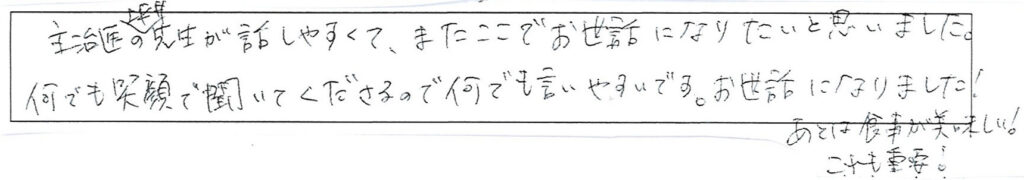 主治医の先生が話しやすくて、またここでお世話になりたいと思いました。
何でも笑顔で聞いてくださるので何でも言いやすいです。お世話になりました!
あとは食事が美味しい!
これも重要!